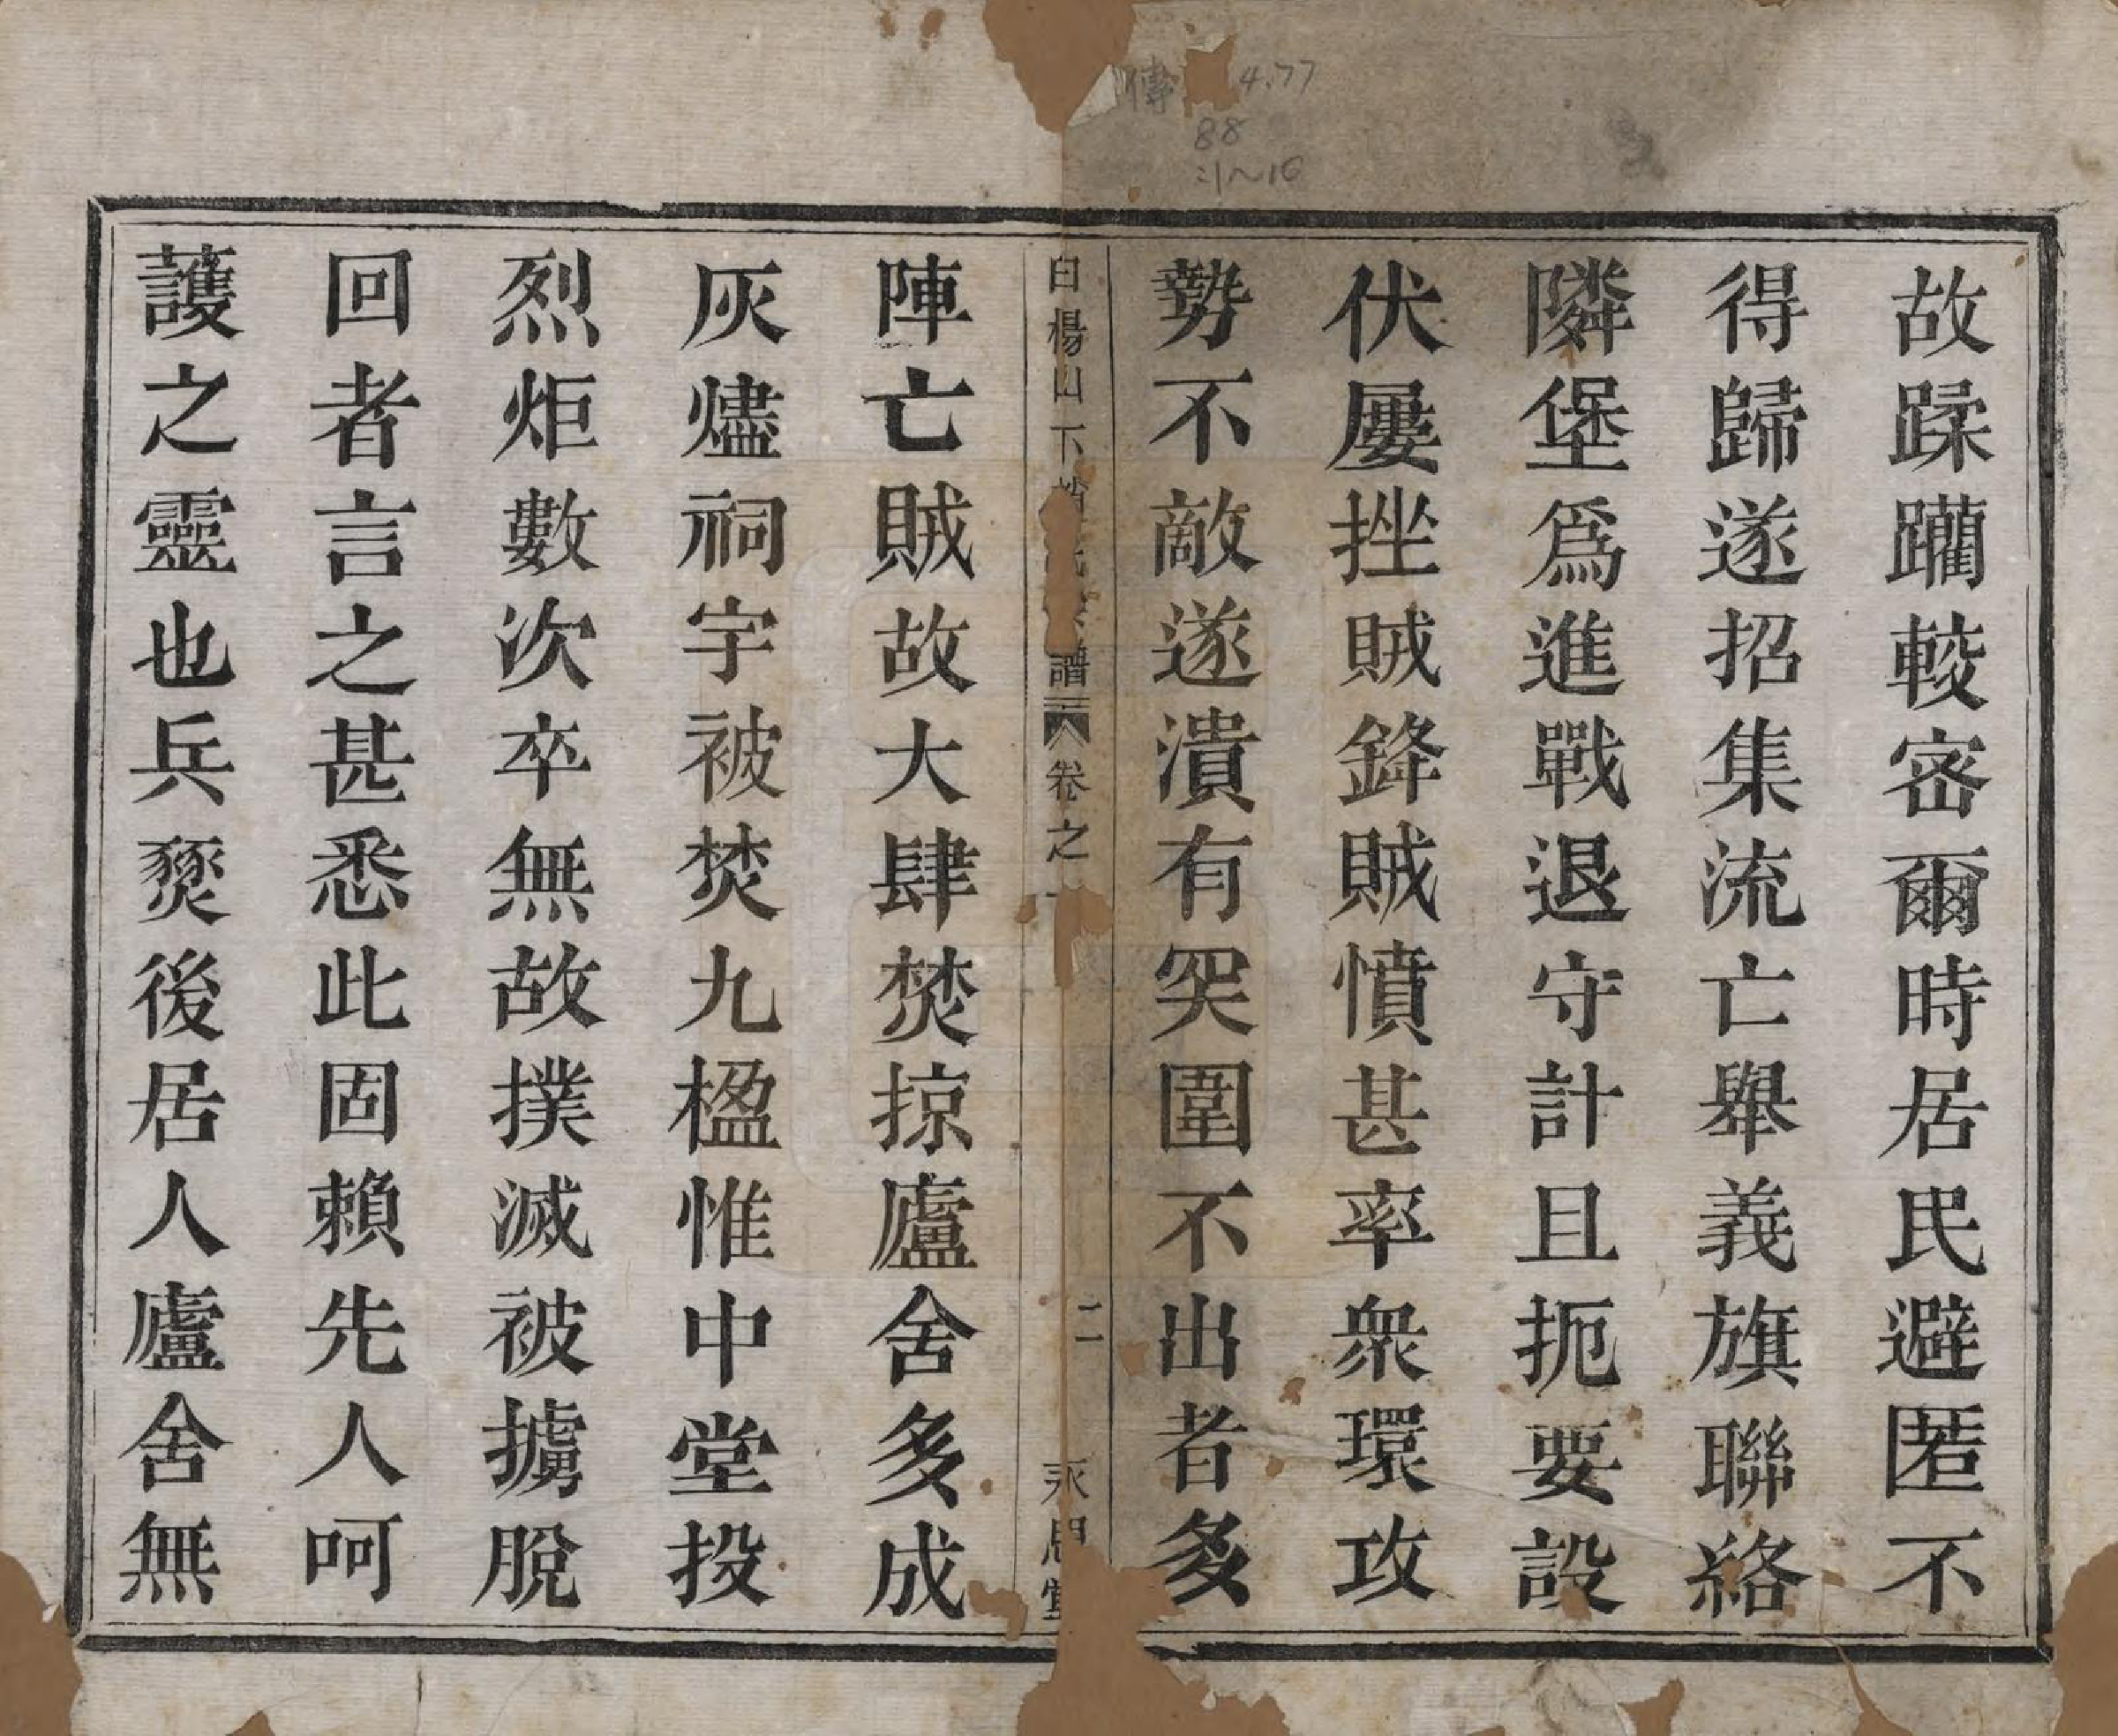 故蹂躪較密爾時居民避匿不
得歸遂招集流亡舉義旗聯絡
隣堡爲進戰退守計且扼要設
伏屢挫賊鋒賊憤甚率衆環攻
勢不敵遂潰有突圍不出者多
白楊山下 譜 卷之
二
永思堂
陣亡賊故大肆焚掠廬舍多成
灰燼祠宇被焚九楹惟中堂投
烈炬數次卒無故撲滅被擄脫
回者言之甚悉此固賴先人呵
護之靈也兵燹後居人廬舍無
4.77
88